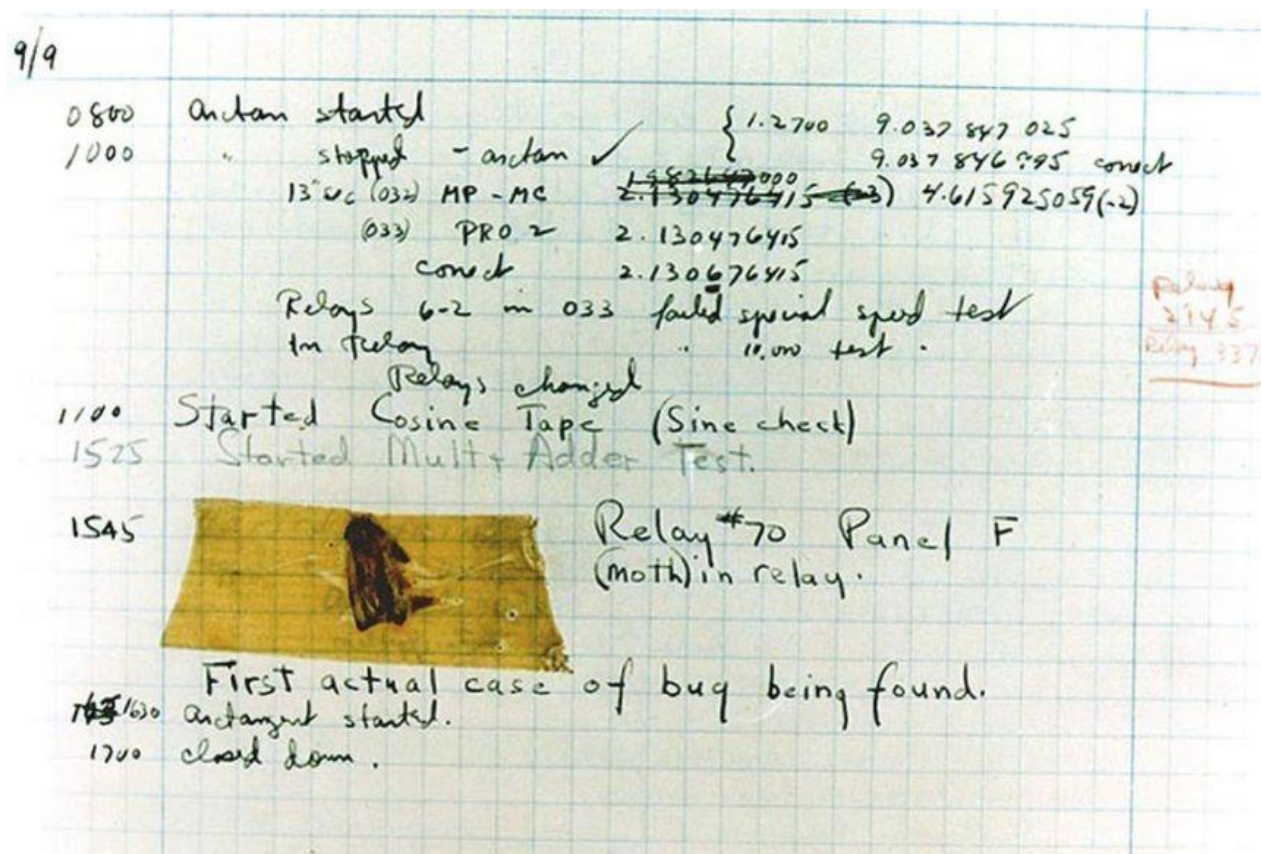 9/9
0800 Antan started { 1.2700 9.037 847 025
1000 " stopped - antan ✓ 9.037 846 995 conect
13"uc (032) MP - MC 1.982647000 2.130476415 (-3) 4.615925059(-2)
(033) PRO 2 2.130476415
conect 2.130676415
Relays 6-2 in 033 failed special speed test
In Relay " 10,000 test .
Relay
2145
Relay 337
Relays changed
1100 Started Cosine Tape (Sine check)
1525 Started Mult + Adder Test.
1545 Relay #70 Panel F
(moth) in relay.
First actual case of bug being found.
1630 antangent started.
1700 closed down .